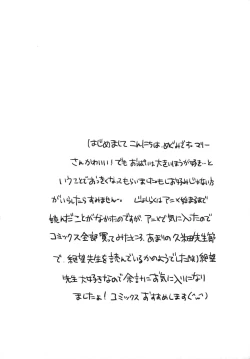 はじめまして こんにちは、めどんです。マリー
さんかわいい！でもおっぱい大きいほうが好き…と
いうことでおっきくなってもらいました。もしお好みじゃない方
がいらしたらすみません。 じょしらくはアニメ始まるまで
読んだことがなかたのですが、アニメで気に入ったので
コミックス全部買ってみたところ、あまりの久米田先生節
で、絶望先生を読んでいるかのようでした(笑)絶望
先生大好きなので余計にお気に入りになり
ましたよ！コミックスおすすめします(^ω^)